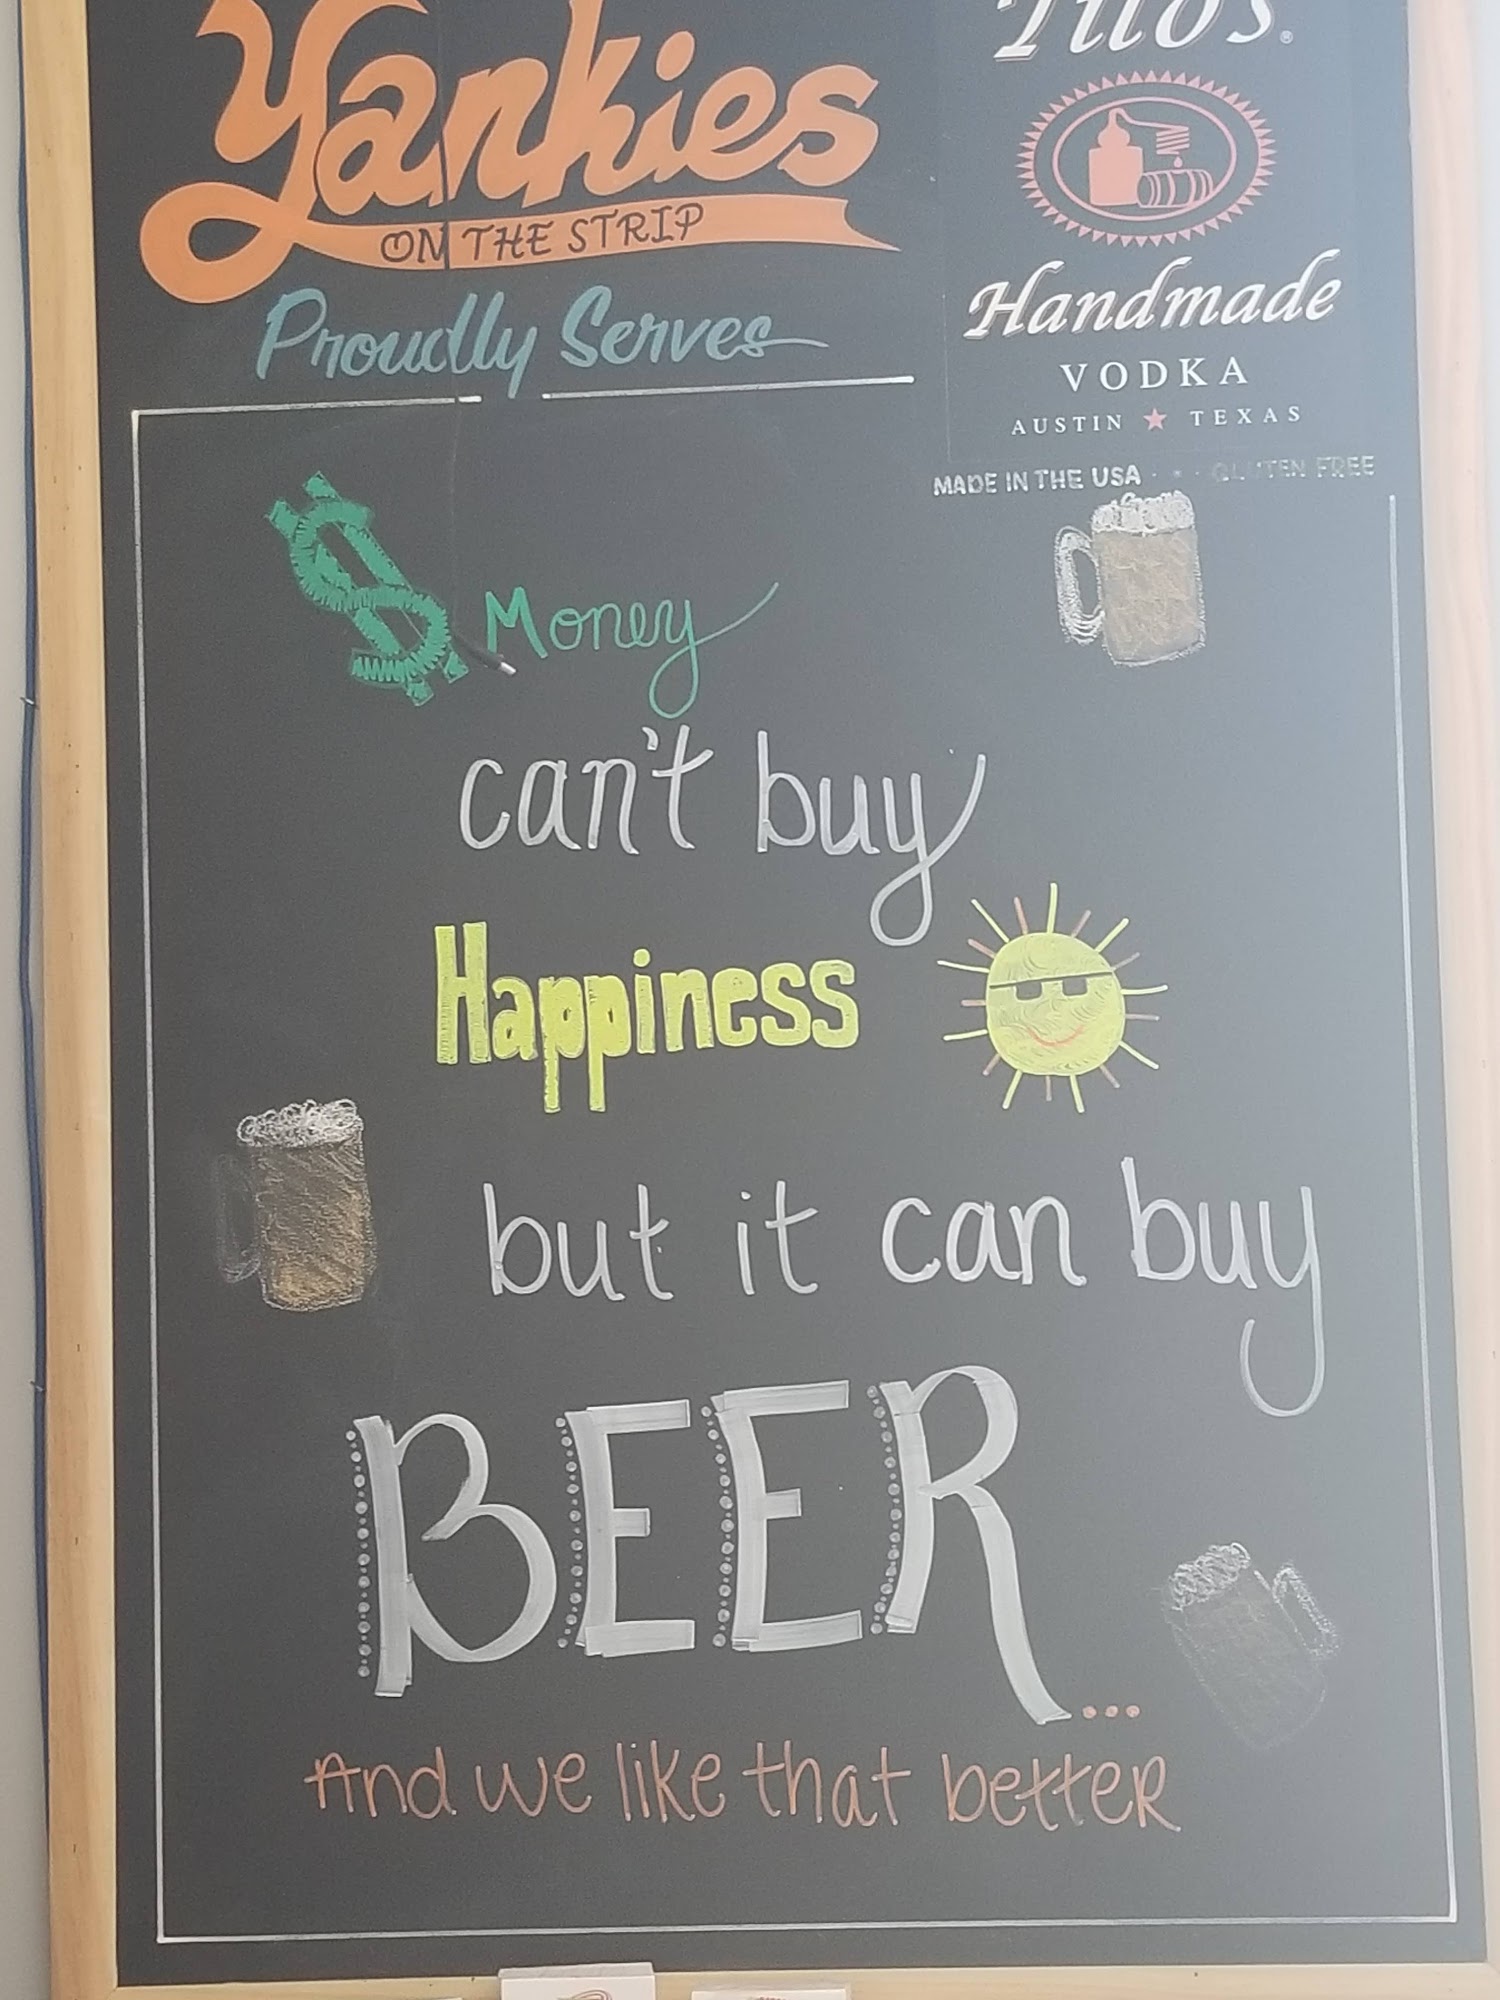 Yankies
ON THE STRIP
Proudly Serves
Tito's®
Handmade
VODKA
AUSTIN ★ TEXAS
MADE IN THE USA · • · GLUTEN FREE
$ Money
can't buy
Happiness
but it can buy
BEER...
And we like that better